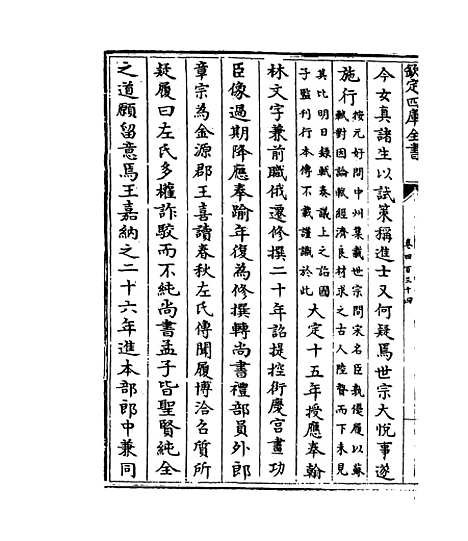 欽定四庫全書
卷四百三十四
今女真諸生以試策稱進士又何疑焉世宗大悅事遂
施行
按元好問中州集載世宗問宋名臣孰優履以蘇
軾對因論軾經濟良材求之古人陸贄而下未見
其比明日錄軾奏議上之詔國
子監刊行本傳不載謹識於此
大定十五年授應奉翰
林文字兼前職俄遷修撰二十年詔提控衍慶宫畫功
臣像過期降應奉踰年復為修撰轉尚書禮部員外郎
章宗為金源郡王喜讀春秋左氏傳聞履博洽召質所
疑履曰左氏多權詐駮而不純尚書孟子皆聖賢純全
之道願留意焉王嘉納之二十六年進本部郎中兼同